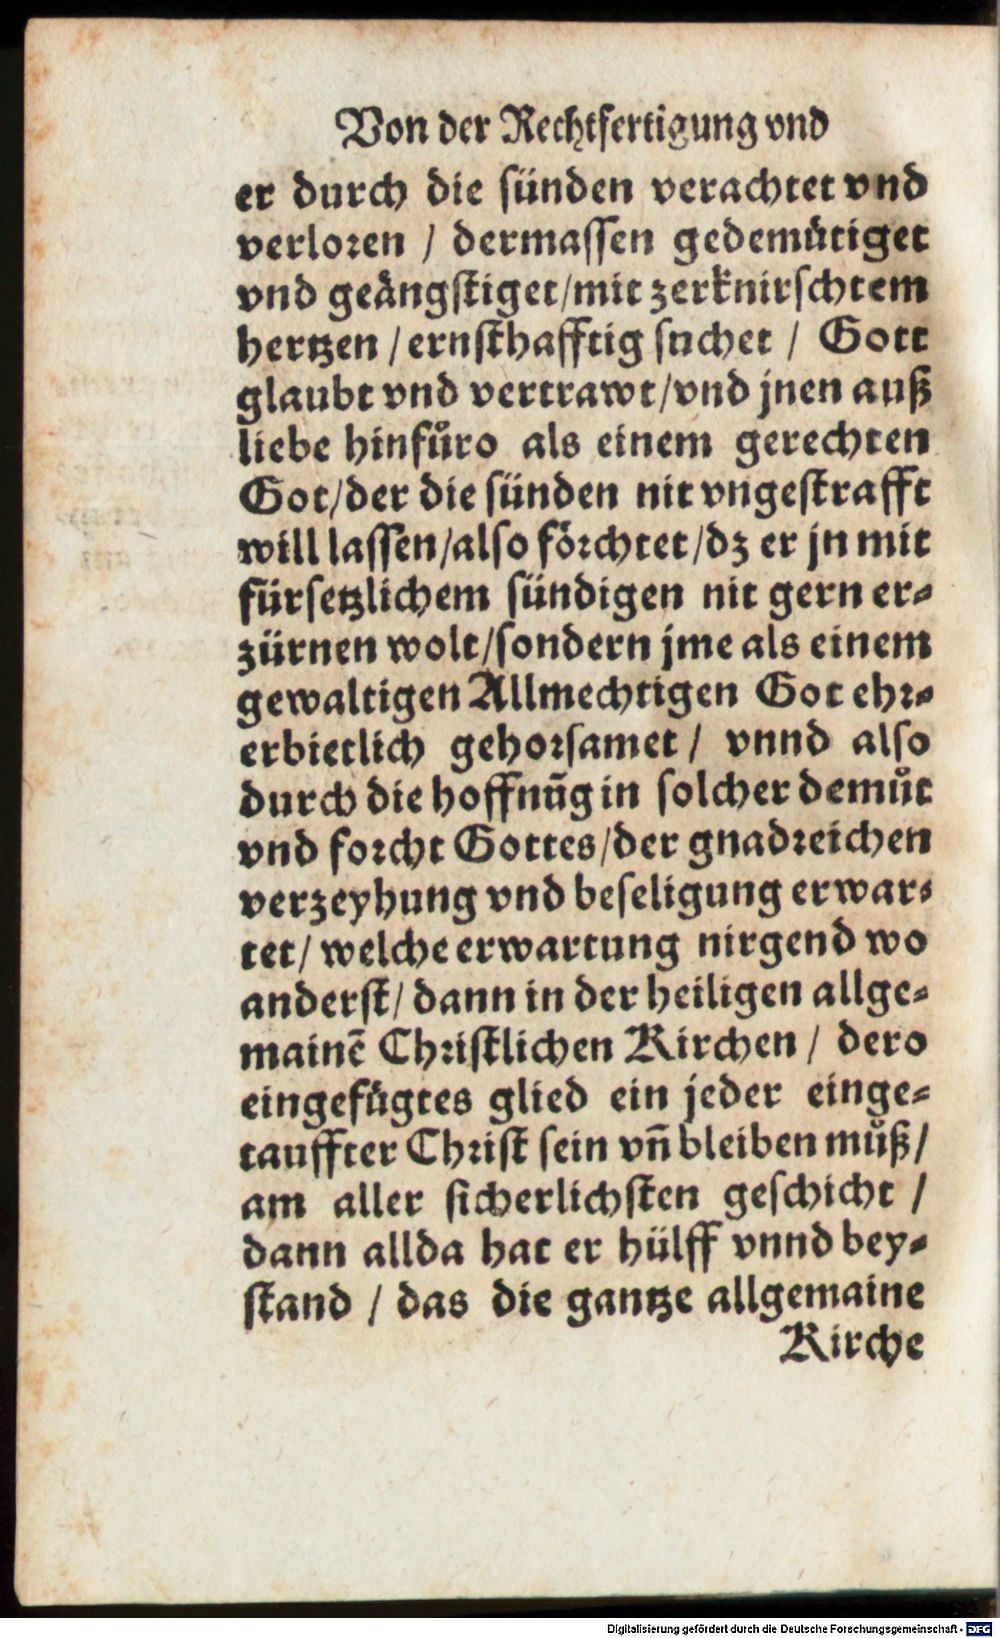 Von der Rechtfertigung vnd
er durch die sünden verachtet vnd
verloren / dermassen gedemütiget
vnd geängstiget/mit zerknirschtem
hertzen / ernsthafftig suchet / Gott
glaubt vnd vertrawt/vnd jnen auß
liebe hinfůro als einem gerechten
Got/der die sünden nit vngestrafft
will lassen/also förchtet/dz er jn mit
fürsetzlichem sündigen nit gern er-
zürnen wolt/sondern jme als einem
gewaltigen Allmechtigen Got ehr-
erbietlich gehorsamet / vnnd also
durch die hoffnūg in solcher demůt
vnd forcht Gottes/der gnadreichen
verzeyhung vnd beseligung erwar-
tet/ welche erwartung nirgend wo
anderst/ dann in der heiligen allge-
mainē Christlichen Kirchen / dero
eingefügtes glied ein jeder einge-
tauffter Christ sein vñ bleiben můß/
am aller sicherlichsten geschicht /
dann allda hat er hülff vnnd bey-
stand / das die gantze allgemaine
Kirche
Digitalisierung gefördert durch die Deutsche Forschungsgemeinschaft - DFG